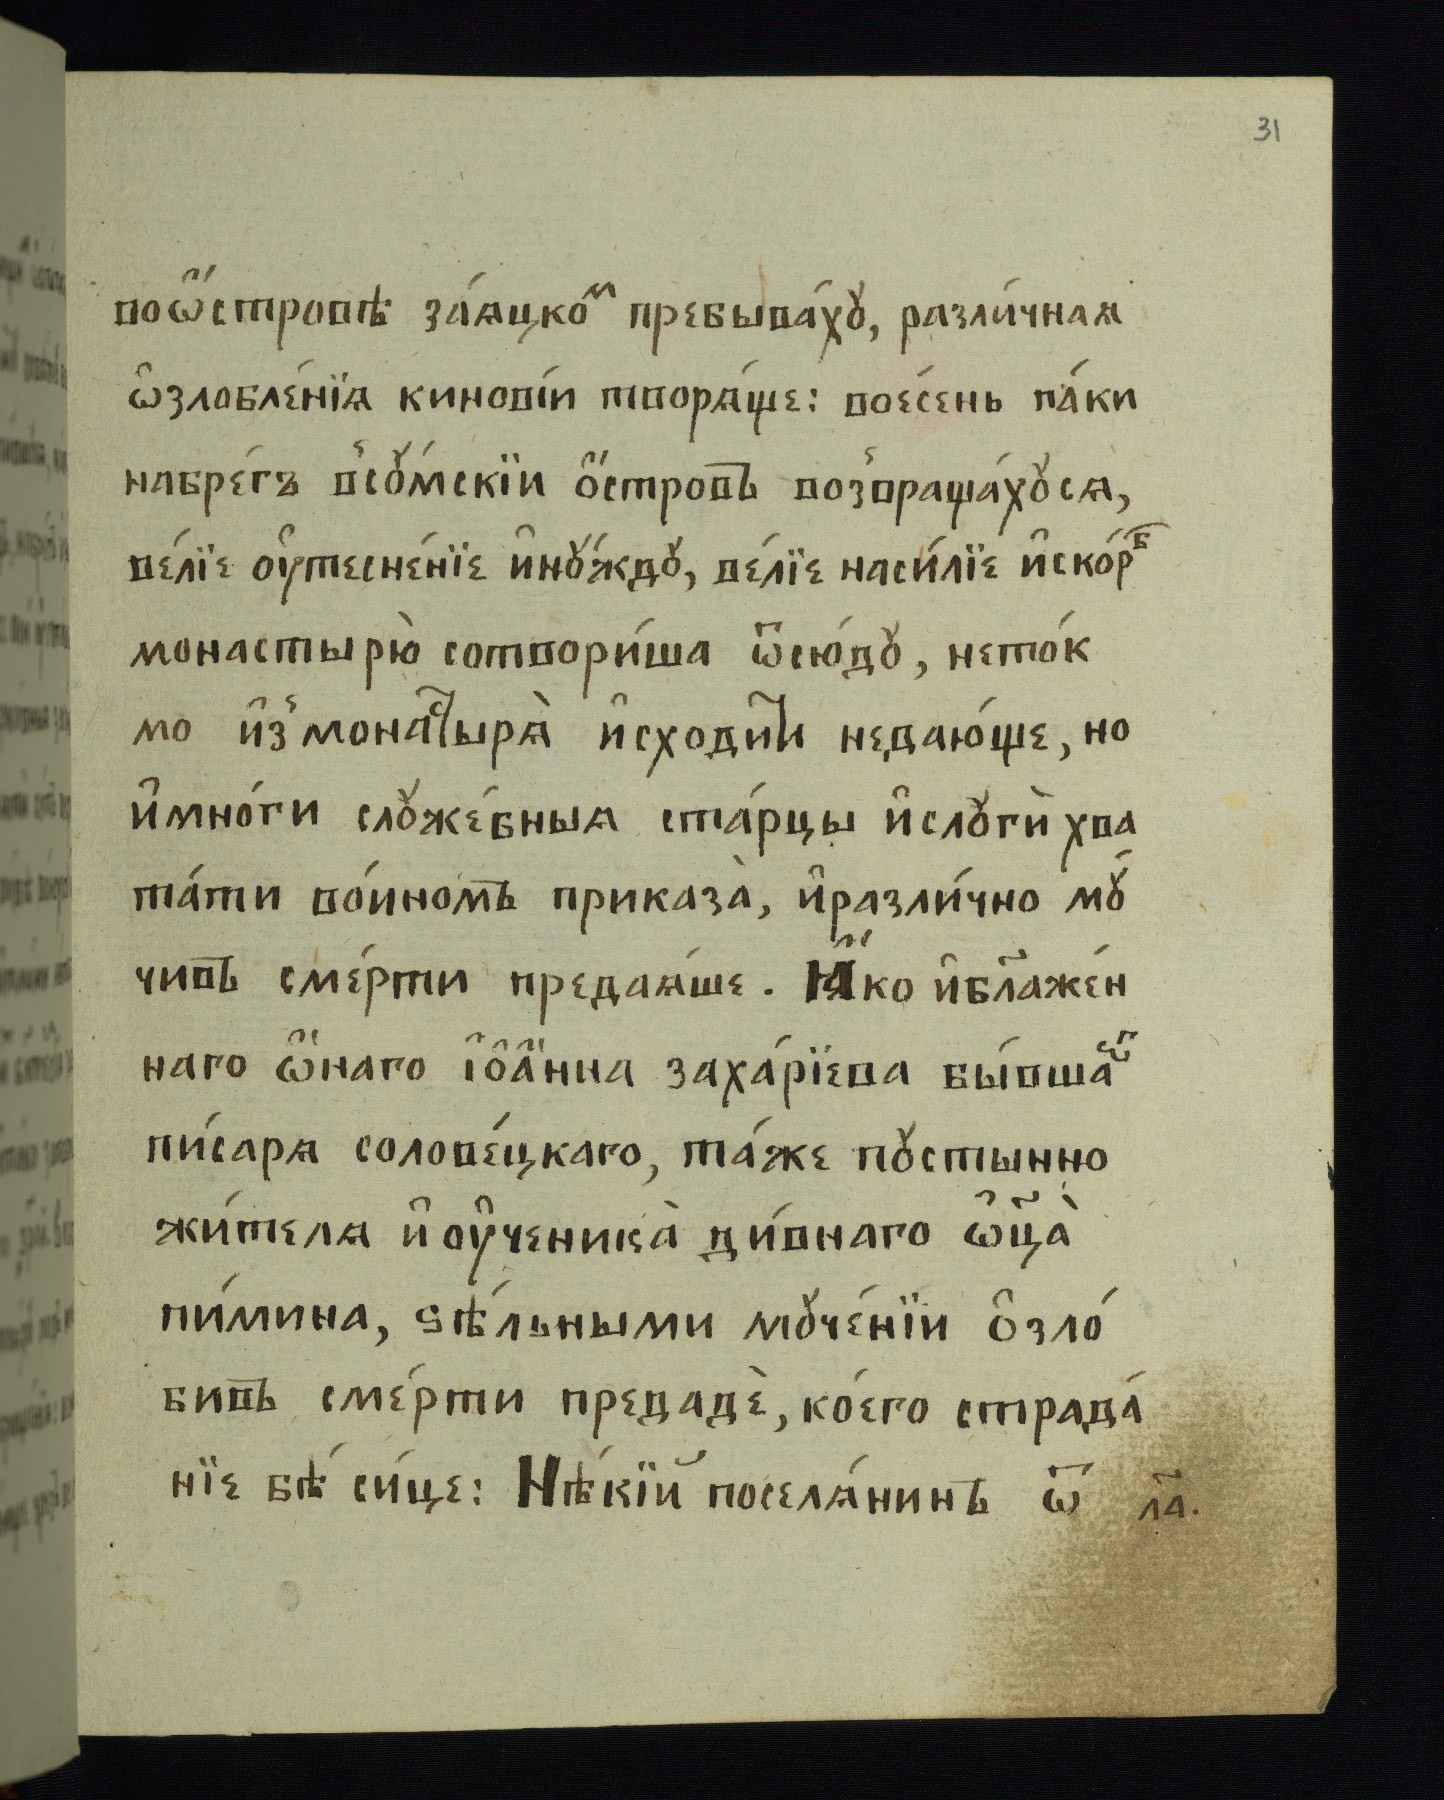 31
воѡ҆́стровѣ за́ѧцкоⷨ пребыва́хꙋ, разли́чнаѧ
ѡ҆злобле́нїѧ кинові́и творѧ́ще: вое́сень па́ки
набре́гъ в̾сꙋ́мскїи о҆́стровъ воз̾враща́хꙋсѧ,
ве́лїе оу҆тесне́нїе и҆нꙋ́ждꙋ, ве́лїе наси́лїе и҆ско́рⷠ
монастырю̀ сотвори́ша ѿсю́дꙋ, нето́к
мо и҆з̾монаⷭ҇тырѧ̀ и҆сходи́ти недаю́ще, но
и҆мно́ги слꙋже́бныѧ ста́рцы и҆слꙋгѝ хва
та́ти во́иномъ приказа̀, и҆разли́чно мꙋ́
чивъ сме́рти предаѧ́ше. Ꙗ҆́ко и҆бл҃аже́н
наго ѡ҆́наго і҆ѻ҆а́нна заха́рїева бы́вшаⷢ҇ѡ
пи́сарѧ солове́цкаго, та́же пꙋстынно
жи́телѧ и҆ оу҆ченика̀ ди́внаго ѡ҆ц҃а̀
пи́мина, ѕѣ́льными мꙋче́нїи ѻ҆зло́
бивъ сме́рти предадѐ, ко́его страда́
нїе бѣ̀ си́це: Нѣ́кїй поселѧ́нинъ ѿ
л҃а.